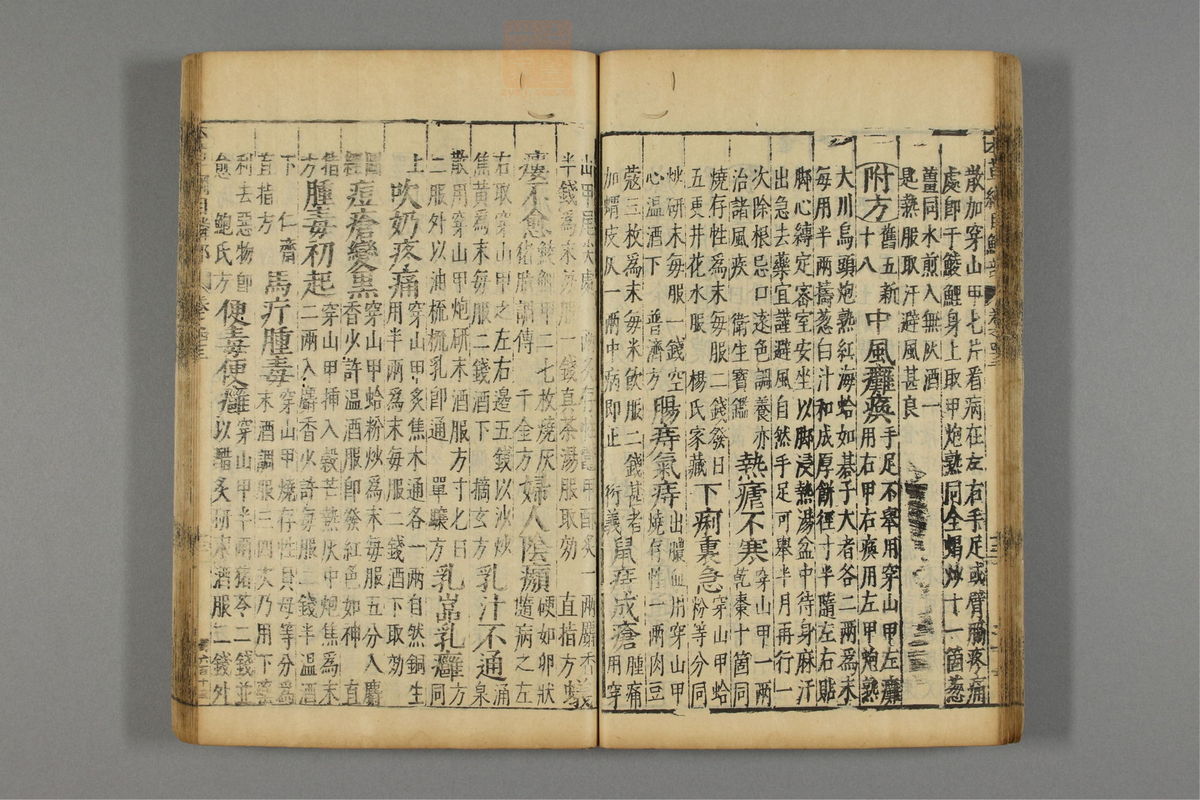 散加穿山甲七片看病在左右手足或臂脇疼痛
處即于鯪鯉身上取甲炮熟同全蝎炒十一箇葱
薑同水煎入無灰酒一
匙熱服取汗避風甚良
附方舊五新十八
中風癱瘓手足不舉用穿山甲左癱
用右甲右瘓用左甲炮熟
大川烏頭炮熟紅海蛤如碁子大者各二兩爲末
每用半兩擣葱白汁和成厚餅徑寸半隨左右貼
脚心縛定密室安坐以脚浸熱湯盆中待身麻汗
出急去藥宜謹避風自然手足可舉半月再行一
次除根忌口遠色調養亦
治諸風疾 衞生寶鑑
熱瘧不寒穿山甲一兩
乾棗十箇同
燒存性爲末每服二錢發日
五更井花水服 楊氏家藏
下痢裏急穿山甲蛤
粉等分同
炒研末每服一錢空
心溫酒下 普濟方
腸痔氣痔出膿血用穿山甲
燒存性一兩肉豆
蔻三枚爲末每米飲服二錢甚者
加蝟皮灰一兩中病即止 衍義
鼠痔成瘡腫痛
用穿
山甲尾尖處 兩炙存性鼈甲酥炙一兩麝香
半錢爲末每服一錢眞茶湯服取効 直指方
瘻不愈
鯪鯉甲二七枚燒灰
猪脂調傅 千金方
婦人陰㿗硬如卵狀
隨病之左
右取穿山甲之左右邊五錢以沙炒
焦黃爲末每服二錢酒下 摘玄方
乳汁不通涌
泉
散用穿山甲炮研末酒服方寸匕日
二服外以油梳梳乳即通 單驤方
乳嵓乳癰方
同
上吹奶疼痛穿山甲炙焦木通各一兩自然銅生
用半兩爲末每服二錢酒下取効
痘瘡變黑穿山甲蛤粉炒爲末每服五分入麝
香少許溫酒服即發紅色如神 直
指
方腫毒初起穿山甲插入穀芒熱灰中炮焦爲末
二兩入麝香少許每服二錢半溫酒
下 仁齋
直指方
馬疔腫毒穿山甲燒存性貝母等分爲
末酒調服三四次乃用下藥
利去惡物即
愈 鮑氏方
便毒便癰穿山甲半兩猪苓二錢並
以醋炙研末酒服二錢外